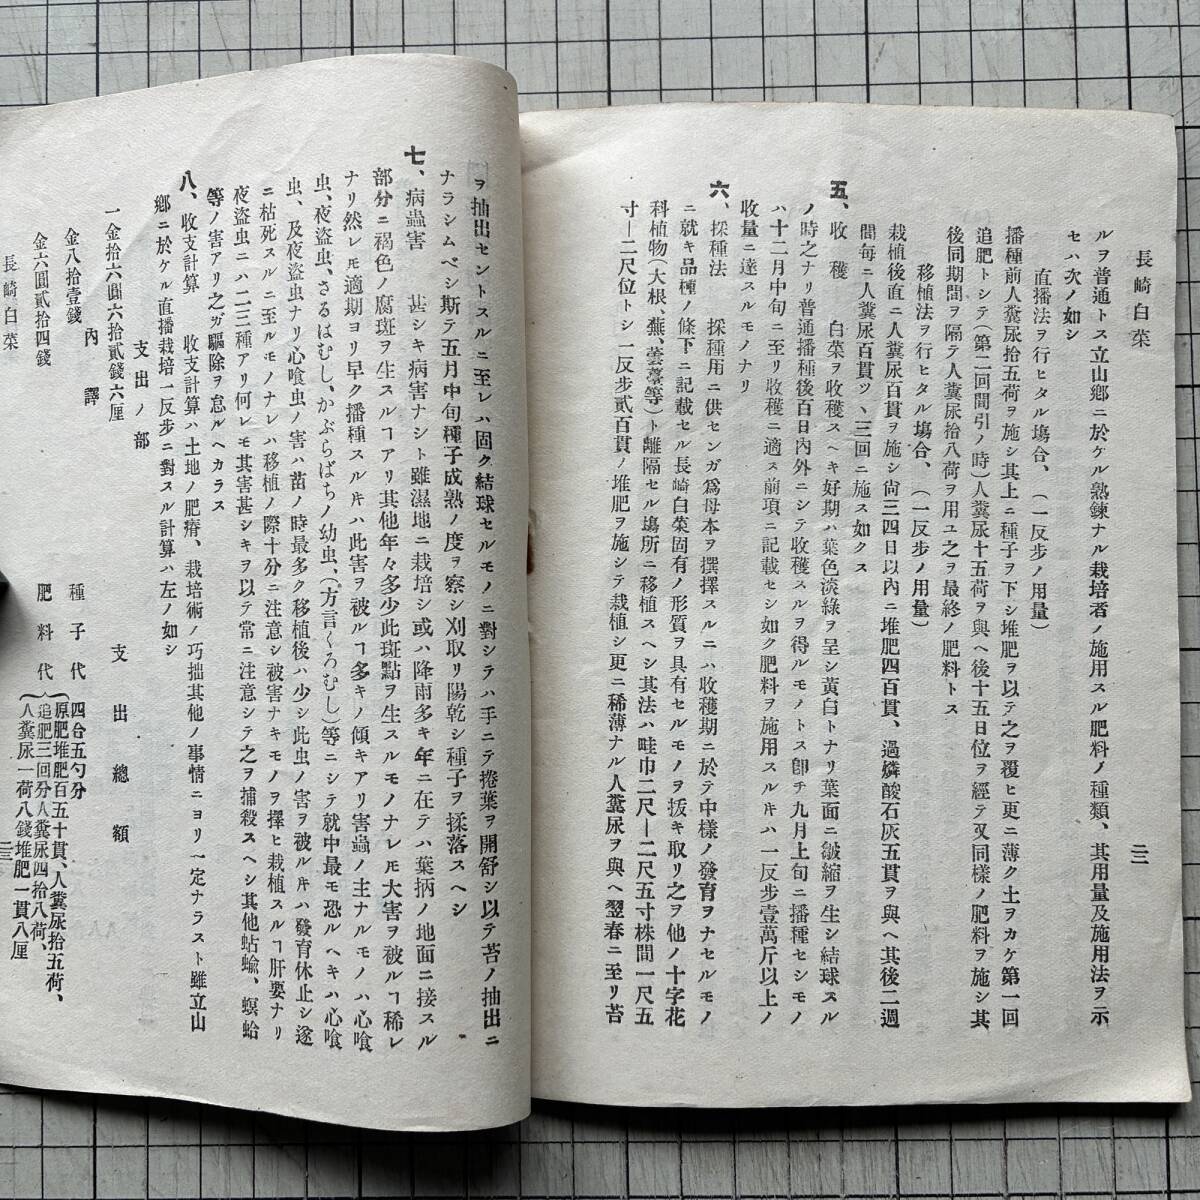 長崎白菜
二二
ルヲ普通トス立山鄕ニ於ケル熟鍊ナル栽培者ノ施用スル肥料ノ種類、其用量及施用法ヲ示
セハ次ノ如シ
直播法ヲ行ヒタル塲合、(一反步ノ用量)
播種前人糞尿拾五荷ヲ施シ其上ニ種子ヲ下シ堆肥ヲ以テ之ヲ覆ヒ更ニ薄ク土ヲカケ第一回
追肥トシテ(第二回間引ノ時)人糞尿十五荷ヲ與ヘ後十五日位ヲ經テ又同樣ノ肥料ヲ施シ其
後同期間ヲ隔テ人糞尿拾八荷ヲ用ユ之ヲ最終ノ肥料トス
移植法ヲ行ヒタル塲合、(一反步ノ用量)
栽植後直ニ人糞尿百貫ヲ施シ尙三四日以內ニ堆肥四百貫、過燐酸石灰五貫ヲ與ヘ其後二週
間每ニ人糞尿百貫ヅヽ三回ニ施ス如クス
五、收穫 白菜ヲ收穫スヘキ好期ハ葉色淡綠ヲ呈シ黃白トナリ葉面ニ皺縮ヲ生シ結球スル
ノ時之ナリ普通播種後百日內外ニシテ收穫スルヲ得ルモノトス卽チ九月上旬ニ播種セシモノ
ハ十二月中旬ニ至リ收穫ニ適ス前項ニ記載セシ如ク肥料ヲ施用スルキハ一反步壹萬斤以上ノ
收量ニ達スルモノナリ
六、採種法 採種用ニ供センガ爲母本ヲ撰擇スルニハ收穫期ニ於テ中樣ノ發育ヲナセルモノ
ニ就キ品種ノ條下ニ記載セル長崎白菜固有ノ形質ヲ具有セルモノヲ拔キ取リ之ヲ他ノ十字花
科植物(大根、蕪、蕓薹等)ト離隔セル塲所ニ移植スヘシ其法ハ畦巾二尺ー二尺五寸株間一尺五
寸ー二尺位トシ一反步貳百貫ノ堆肥ヲ施シテ栽植シ更ニ稀薄ナル人糞尿ヲ與ヘ翌春ニ至リ苔
ヲ抽出セントスルニ至レハ固ク結球セルモノニ對シテハ手ニテ捲葉ヲ開舒シ以テ苔ノ抽出ニ
ナラシムベシ斯テ五月中旬種子成熟ノ度ヲ察シ刈取リ陽乾シ種子ヲ揉落スヘシ
七、病蟲害 甚シキ病害ナシト雖濕地ニ栽培シ或ハ降雨多キ年ニ在テハ葉柄ノ地面ニ接スル
部分ニ褐色ノ腐斑ヲ生スルヿアリ其他年々多少此斑點ヲ生スルモノナレモ大害ヲ被ルヿ稀レ
ナリ然レモ適期ヨリ早ク播種スルキハ此害ヲ被ルヿ多キノ傾キアリ害蟲ノ主ナルモノハ心喰
虫、夜盜虫、さるはむし、かぶらばちノ幼虫、(方言くろむし)等ニシテ就中最モ恐ルヘキハ心喰
虫、及夜盜虫ナリ心喰虫ノ害ハ苗ノ時最多ク移植後ハ少シ此虫ノ害ヲ被ルキハ發育休止シ遂
ニ枯死スルニ至ルモノナレハ移植ノ際十分ニ注意シ被害ナキモノヲ擇ヒ栽植スルヿ肝要ナリ
夜盜虫ニハ二三種アリ何レモ其害甚シキヲ以テ常ニ注意シテ之ヲ捕殺スヘシ其他蛞蝓、螟蛤
等ノ害アリ之ガ驅除ヲ怠ルヘカラス
八、收支計算 收支計算ハ土地ノ肥瘠、栽培術ノ巧拙其他ノ事情ニヨリ一定ナラスト雖立山
鄕ニ於ケル直播栽培一反步ニ對スル計算ハ左ノ如シ
支出ノ部
一金拾六圓六拾貳錢六厘 支出總額
內譯
金八拾壹錢 種子代 四合五勺分
金六圓貳拾四錢 肥料代 原肥堆肥百五十貫、人糞尿拾五荷、
追肥三回分人糞尿四拾八荷、
人糞尿一荷八錢堆肥一貫八厘
長崎白菜